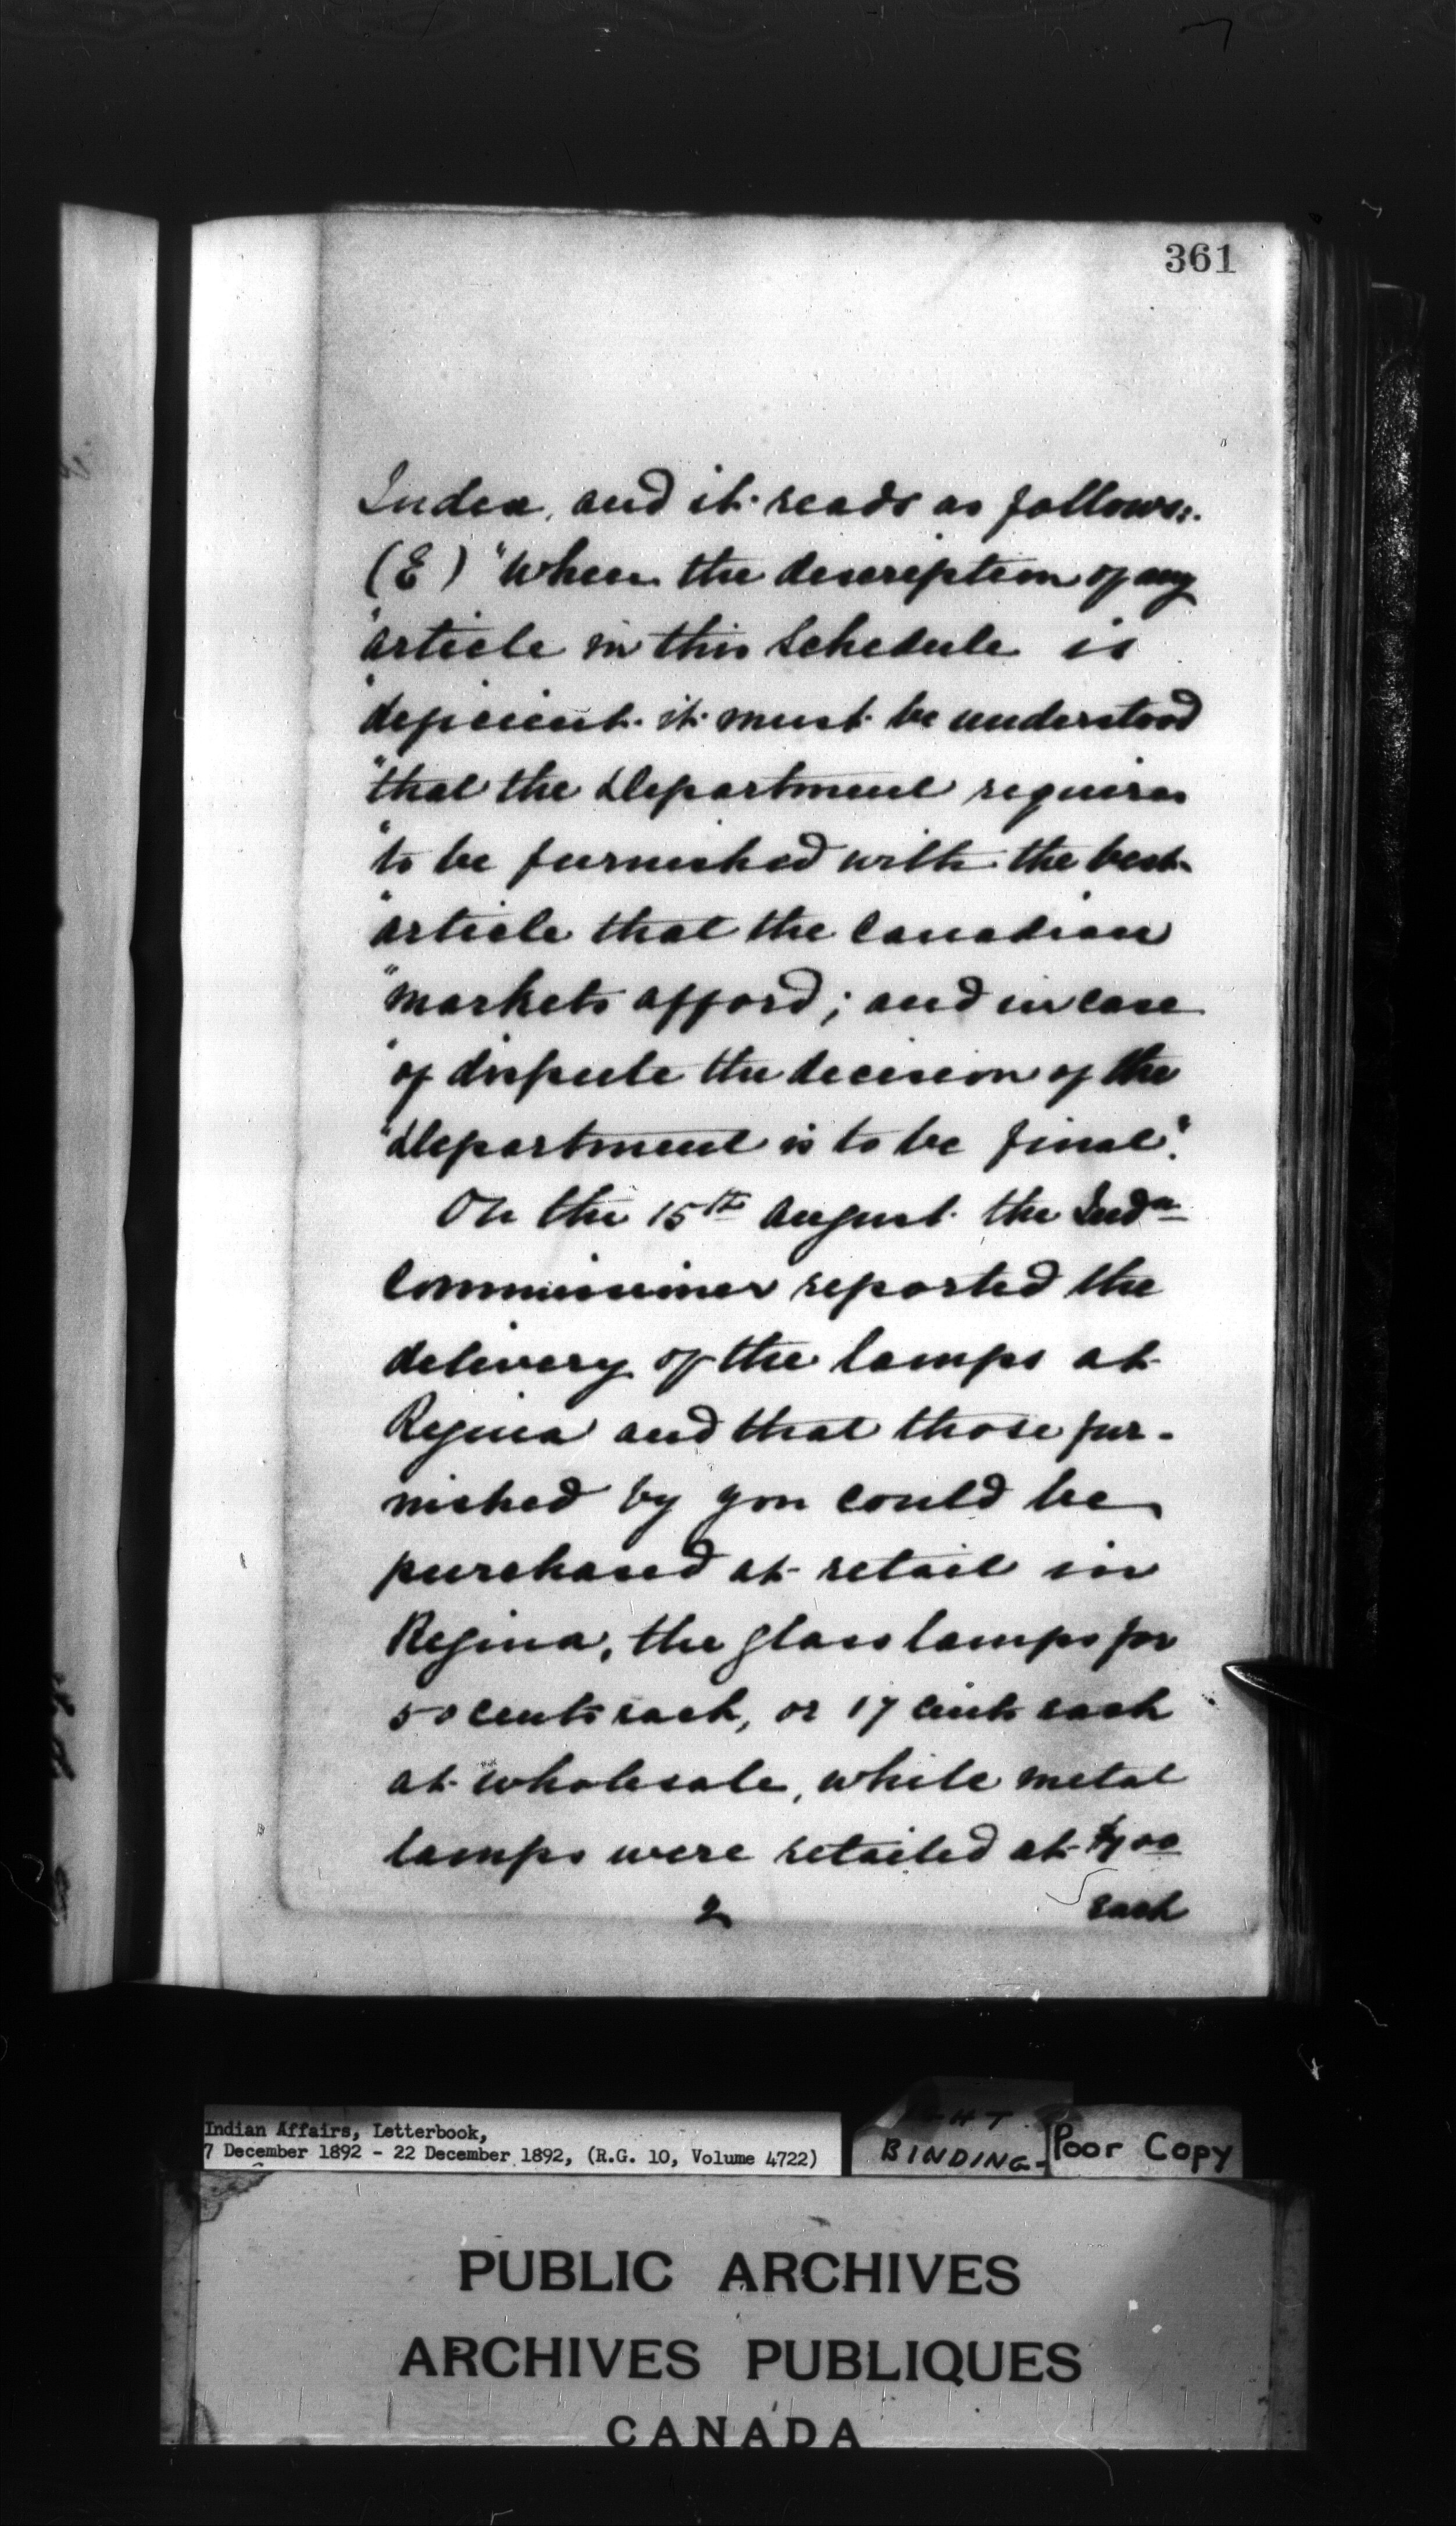 361
Index, and it reads as follows:.
(E) "When the description of any
"article in this Schedule is
"deficient it must be understood
"that the Department requires
"to be furnished with the best
"article that the Canadian
"markets afford; and in case
"of dispute the decision of the
"Department is to be final".
On the 15th August the Indn
Commissioner reported the
delivery of the lamps at
Regina and that those fur-
nished by you could be
purchased at retail in
Regina, the glass lamps for
50 cents each, or 17 cents each
at wholesale, while metal
lamps were retailed at
2 each
Indian Affairs, Letterbook,
7 December 1892 - 22 December 1892, (R.G. 10, Volume 4722)
BINDING-
Poor Copy
PUBLIC ARCHIVES
ARCHIVES PUBLIQUES
CANADA